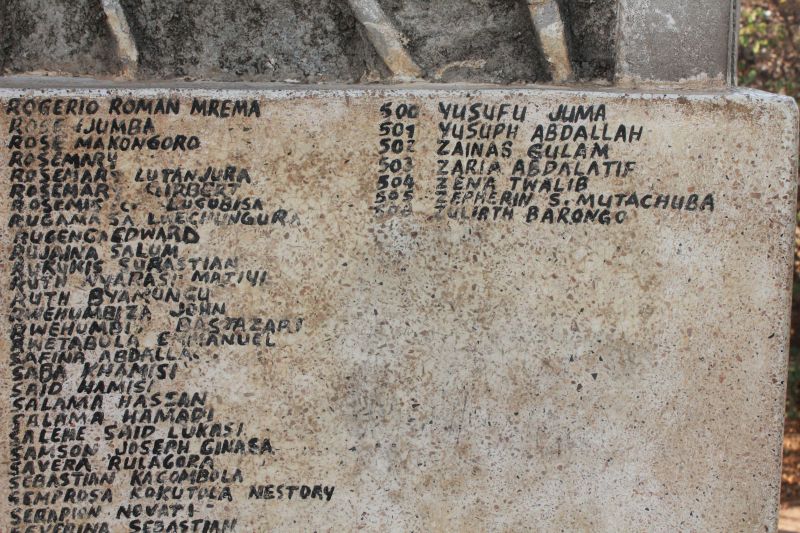 ROGERIO ROMAN MREMA
ROSE IJUMBA
ROSE MAKONGORO
ROSEMARY
ROSEMARY LUTANJURA
ROSEMARY GIRBERT
ROSEMIS C. LUGUBISA
RUGAMA SA LUECHUNGURA
RUGENGA EDWARD
RUJAINA SALUM
SUBASTIAN
RUTH NYARASI MAJIYI
RUTH BYAMUNGU
RWEHUMBIZA JOHN
RWEHUMBIZ BASTAZARI
RWETABULA EMMANUEL
SAFINA ABDALLA
SABA KHAMISI
SAID HAMISI
SALAMA HASSAN
SALAMA HAMADI
SALEHE SAID LUKASI
SAMSON JOSEPH GINASA
SAVERA RULAGORA
SEBASTIAN KAGOMBOLA
SEMPROSA KOKUTOLA NESTORY
SERAPION NOVATI
SEVERINA SEBASTIAN
500 YUSUFU JUMA
501 YUSUPH ABDALLAH
502 ZAINAS GULAM
503 ZARIA ABDALATIF
504 ZENA TWALIB
505 ZEPHERIN S. MUTACHUBA
506 ZULIATH BARONGO